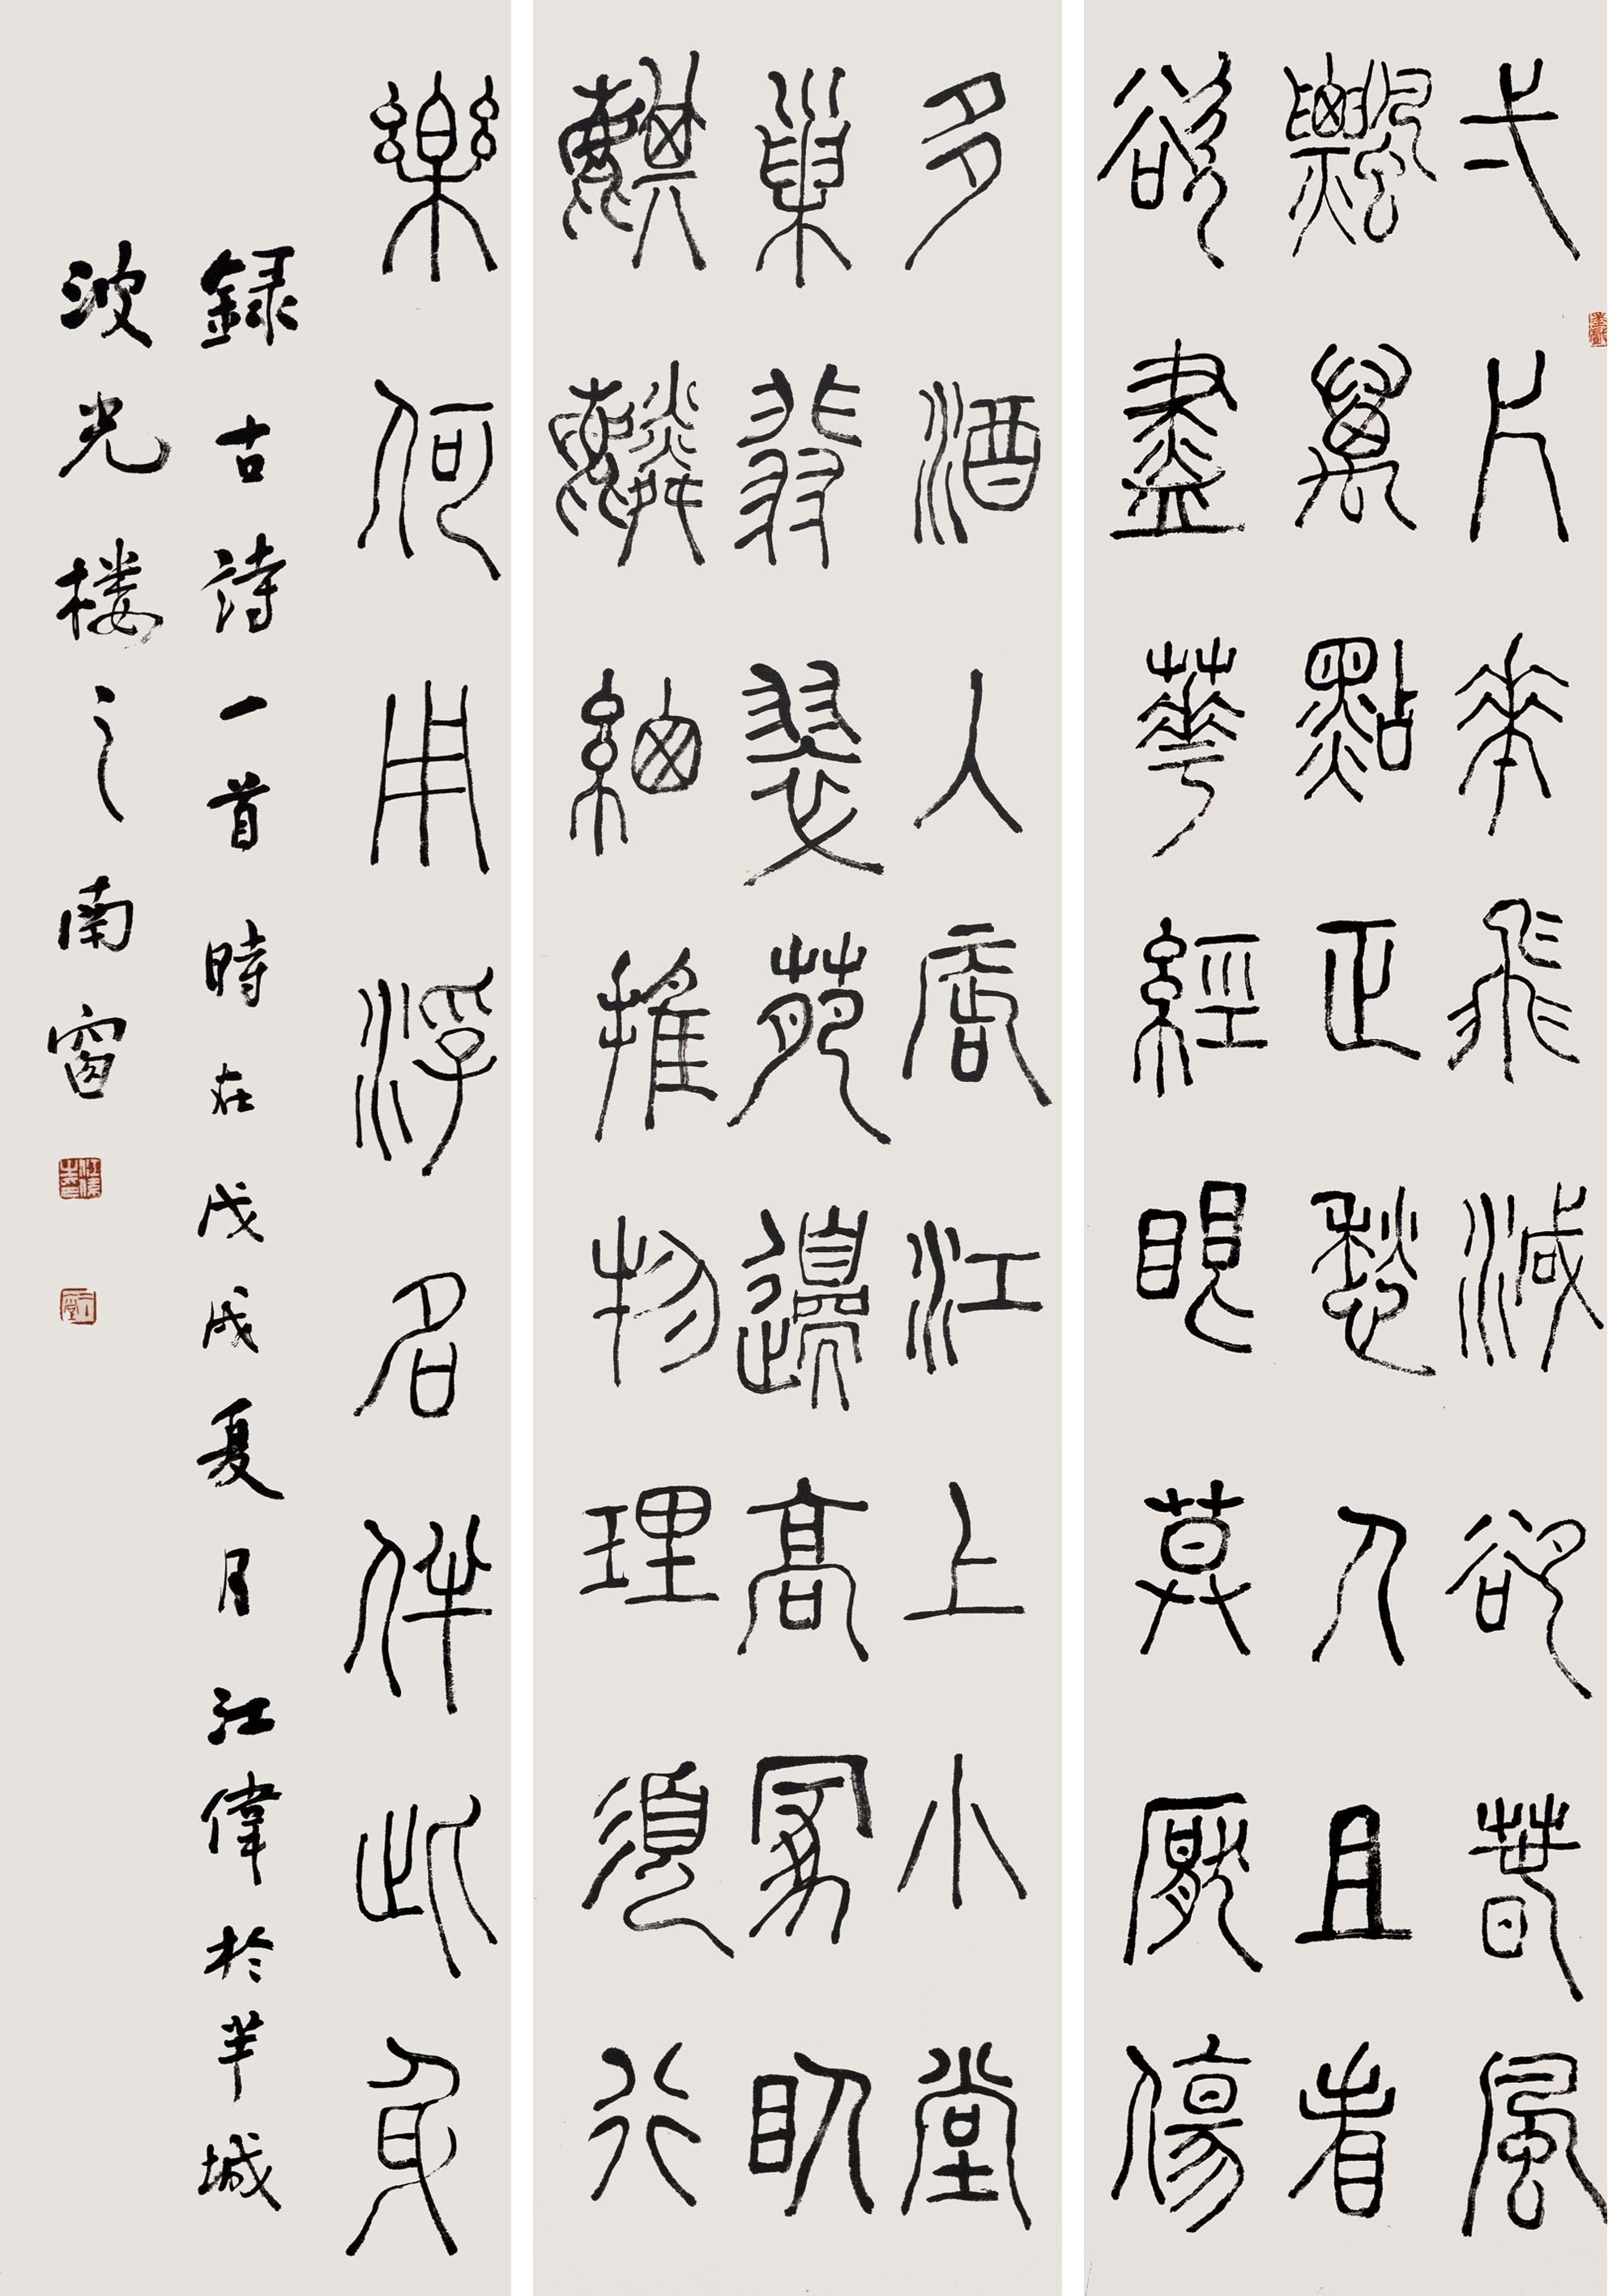 弌片華飛減卻春風
飄萬點正愁人且看
欲盡華經眼莫厭傷
多酒入唇江上小堂
巢翡翠苑邊高冢臥
麒麟細推物理須行
樂何用浮名伴此身
録古詩一首時在戊戌夏月江偉於羊城
波光楼之南窗